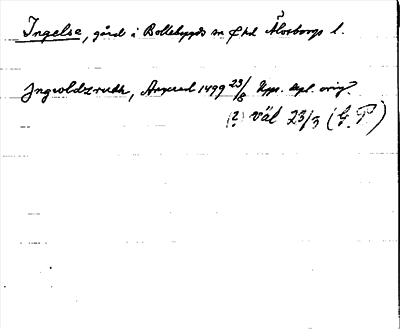 Ingelse, gård i Bollebygds sn o hd Älvsborgs l.
Ingwoldzrudh, 1499 23/8 Upps. dpl. orig.
(?) väl 23/3 (G. P.)